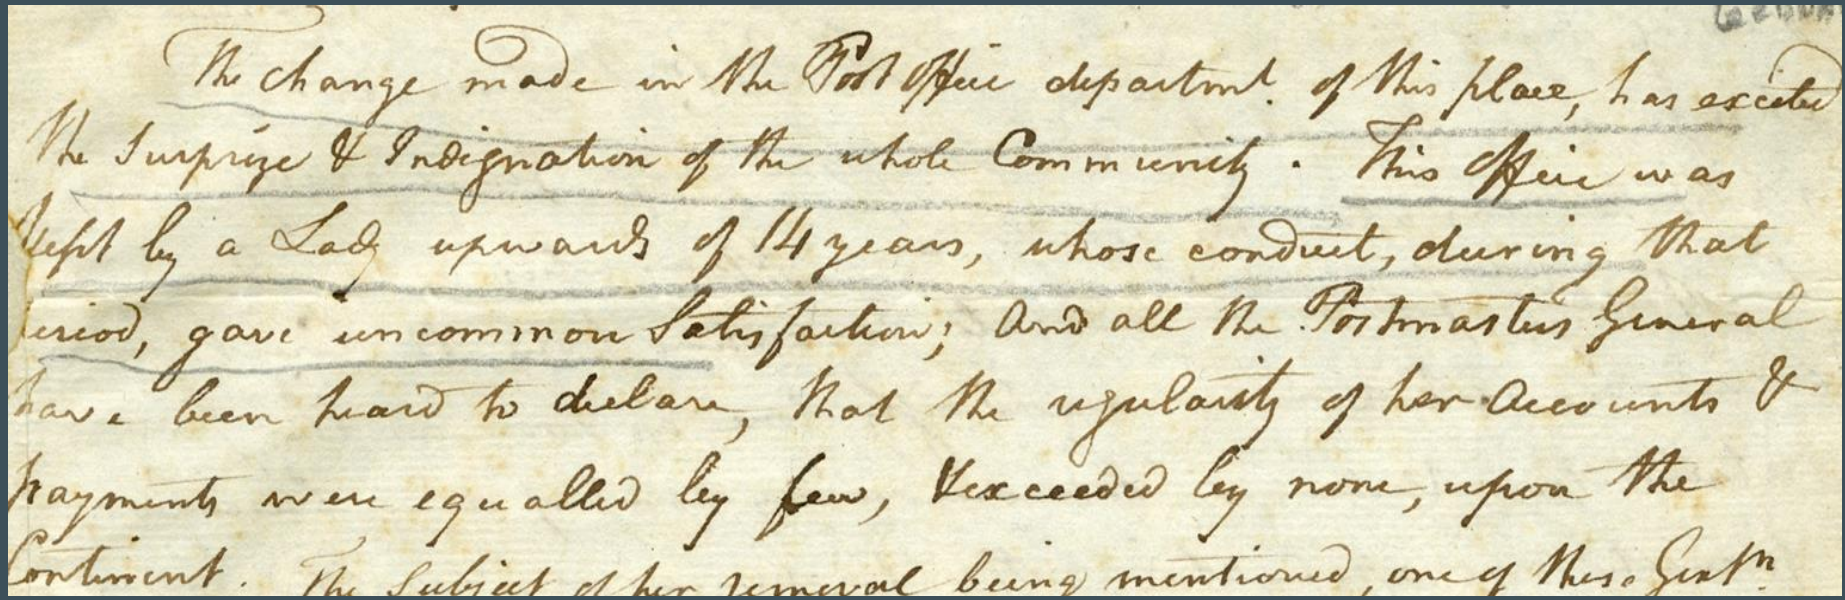 The change made in the Post Office departmt. of this place, has excited
the Surprize & Indignation of the whole Community. This Office was
kept by a Lady upwards of 14 years, whose conduct, during that
period, gave uncommon Satisfaction; And all the Postmasters General
have been heard to declare, that the regularity of her Accounts &
payments were equalled by few, & exceeded by none, upon the
Continent. The Subject of her removal being mentioned, one of these Gentn